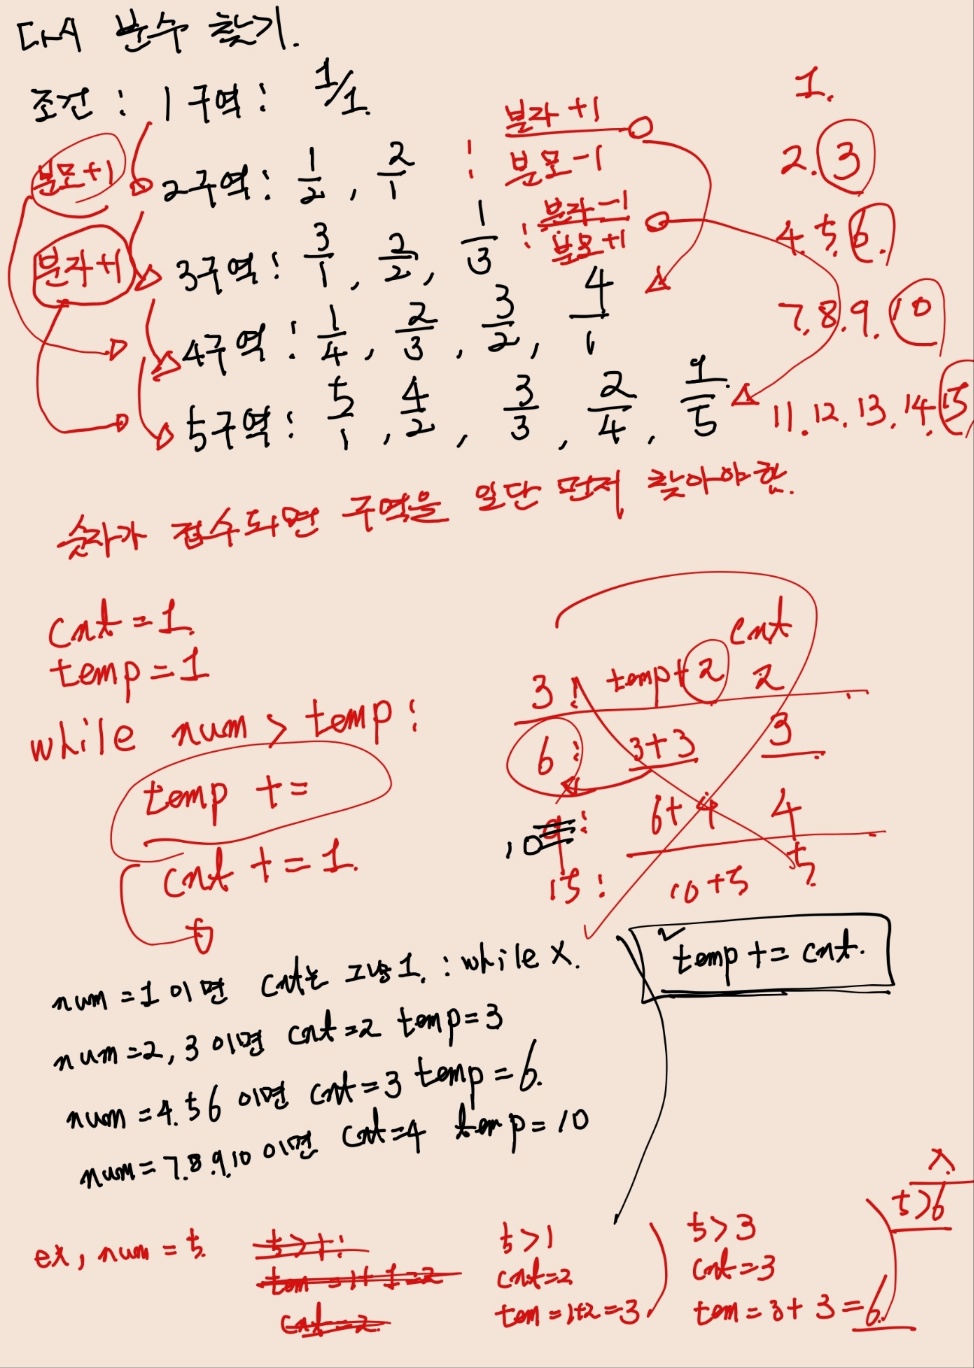 다시 분수 찾기.
조건 : 1구역 : 1/1.
분모+1
2구역 : 1/2 , 2/1 : 분자+1 / 분모-1
분자+1
3구역 : 3/1 , 2/2 , 1/3 : 분자-1 / 분모+1
4구역 : 1/4 , 2/3 , 3/2 , 4/1
5구역 : 5/1 , 4/2 , 3/3 , 2/4 , 1/5
1.
2. 3
4. 5. 6.
7. 8. 9. 10
11. 12. 13. 14. 15
숫자가 접수되면 구역을 일단 먼저 찾아야함.
cnt = 1.
temp = 1
while num > temp :
temp +=
cnt += 1.
cnt
3 : temp+2 2
6 : 3+3 3
10 : 6+4 4
15 : 10+5 5.
temp += cnt.
num = 1 이면 cnt는 그냥 1. : while X.
num = 2, 3 이면 cnt = 2 temp = 3
num = 4. 5 6 이면 cnt = 3 temp = 6.
num = 7. 8. 9. 10 이면 cnt = 4 temp = 10
ex, num = 5
5 > 1 :
tem = 1+1 = 2
cnt = 2
5 > 1
cnt = 2
tem = 1+2 = 3
5 > 3
cnt = 3
tem = 3 + 3 = 6.
X
5 > 6